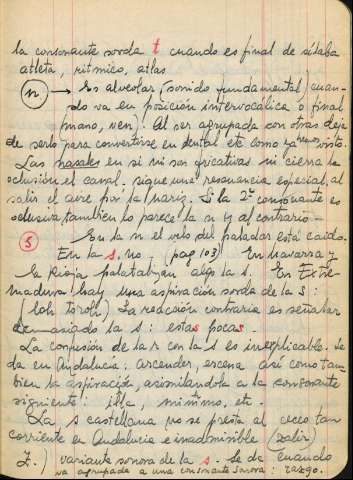 la consonante sorda t cuando es final de sílaba
atleta, rítmico, atlas
n → Es alveolar, (sonido fundamental) cuan-
do va en posición intervocálica o final
(mano, ven). Al ser agrupada con otras deja
de serlo para convertirse en dental etc como ya hemos visto.
Las nasales en sí ni son fricativas ni cierra la
oclusión el canal. sigue una resonancia especial al
salir el aire por la nariz. Si la 2ª consonante es
oclusiva también lo parece la n y al contrario -
En la n el velo del paladar está caido.
S
En la s, no. (pag 103) En navarra y
la Rioja palatalizan algo la s. En Extre-
madura hay una aspiración sorda de la s:
(loh toroh) La reacción contraria es señalar
demasiado la s: estas pocas.
La confusión de la r con la s es inexplicable. Se
da en Andalucía: ascender, escena así como tam-
bién la aspiración, asimilándola a la consonante
siguiente: illa, mimmo, etc.
La s castellana no se presta al ceceo tan
corriente en Andalucía e inadmisible (zalir)
Z.) variante sonora de la s. Se da cuando
va agrupada a una consonante sonora: rasgo.